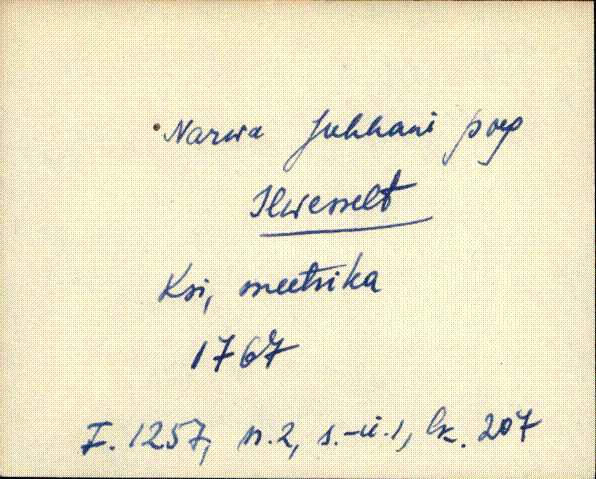 Narwa Juhhani poeg
Ilwesselt
Ksi, meetrika
1767
F. 1257, n. 2, s.-ü. 1, lk. 207